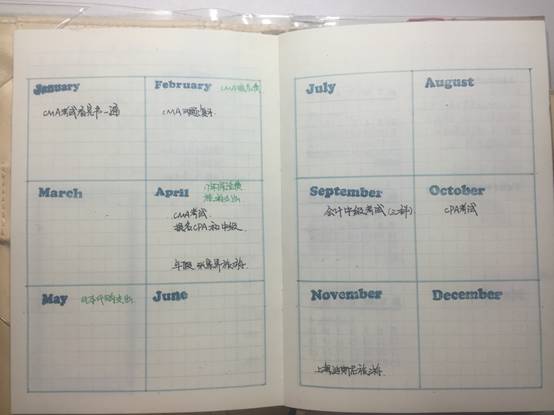 January
CMA考试看完书一遍
February
CMA
CMA习题复习
March
April
CMA考试
报名CPA和中级
年假 张家界旅游
May
日本代购支出
June
July
August
September
会计中级考试(三科)
October
CPA考试
November
上海迪斯尼旅游
December